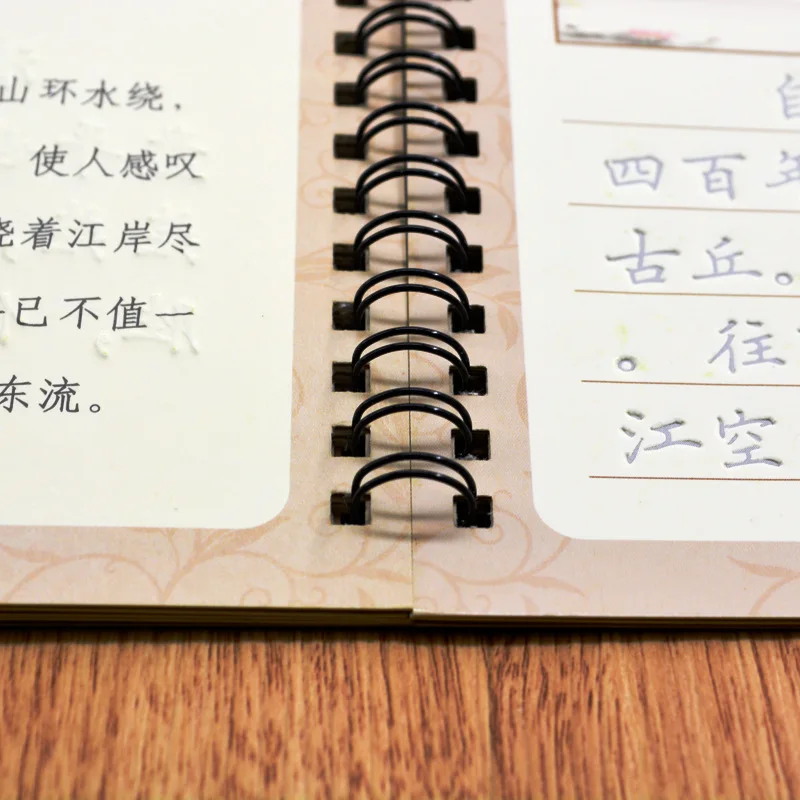 山环水绕，
使人感叹
绕着江岸尽
已不值一
东流。
自
四百年
古丘。
。往
江空